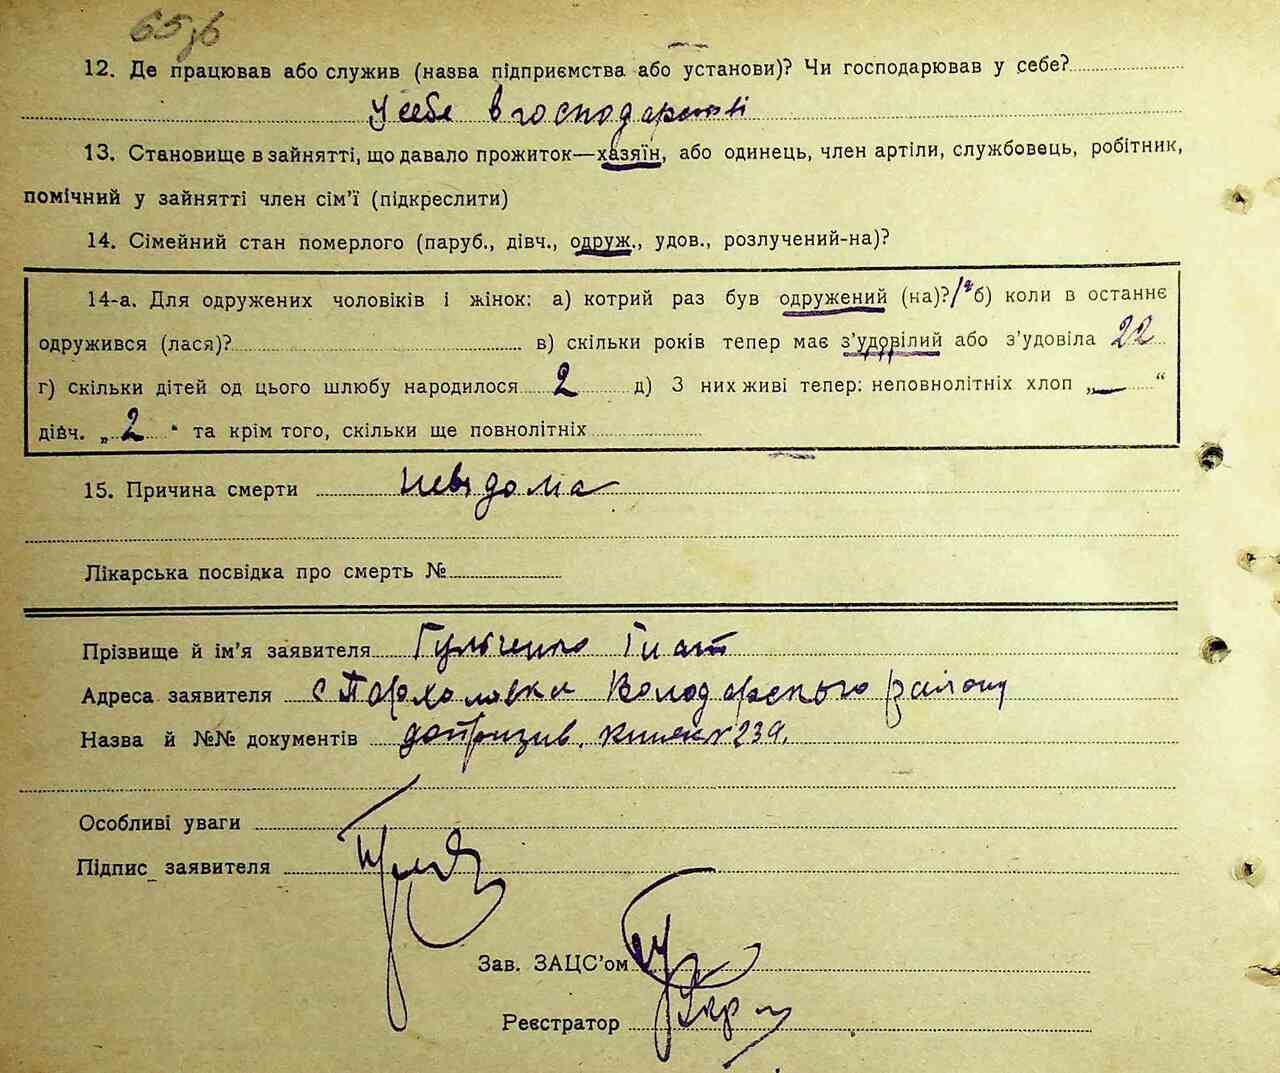 65 зв
12. Де працював або служив (назва підприємства або установи)? Чи господарював у себе?
У себе в господарстві
13. Становище в зайнятті, що давало прожиток—хазяїн, або одинець, член артіли, службовець, робітник,
помічний у зайнятті член сім'ї (підкреслити)
14. Сімейний стан померлого (паруб., дівч., одруж., удов., розлучений-на)?
14-а. Для одружених чоловіків і жінок: а) котрий раз був одружений (на)? б) коли в останнє
одружився (лася)? в) скільки років тепер має з'удовілий або з'удовіла 22
г) скільки дітей од цього шлюбу народилося 2 д) З них живі тепер: неповнолітніх хлоп „—“
дівч. „2“ та крім того, скільки ще повнолітніх
15. Причина смерти невідома
Лікарська посвідка про смерть №
Прізвище й ім'я заявителя Гульченко Гнат
Адреса заявителя с Пархомівки Володарського району
Назва й №№ документів допризив. 239.
Особливі уваги
Підпис заявителя
Зав. ЗАЦС'ом
Реєстратор